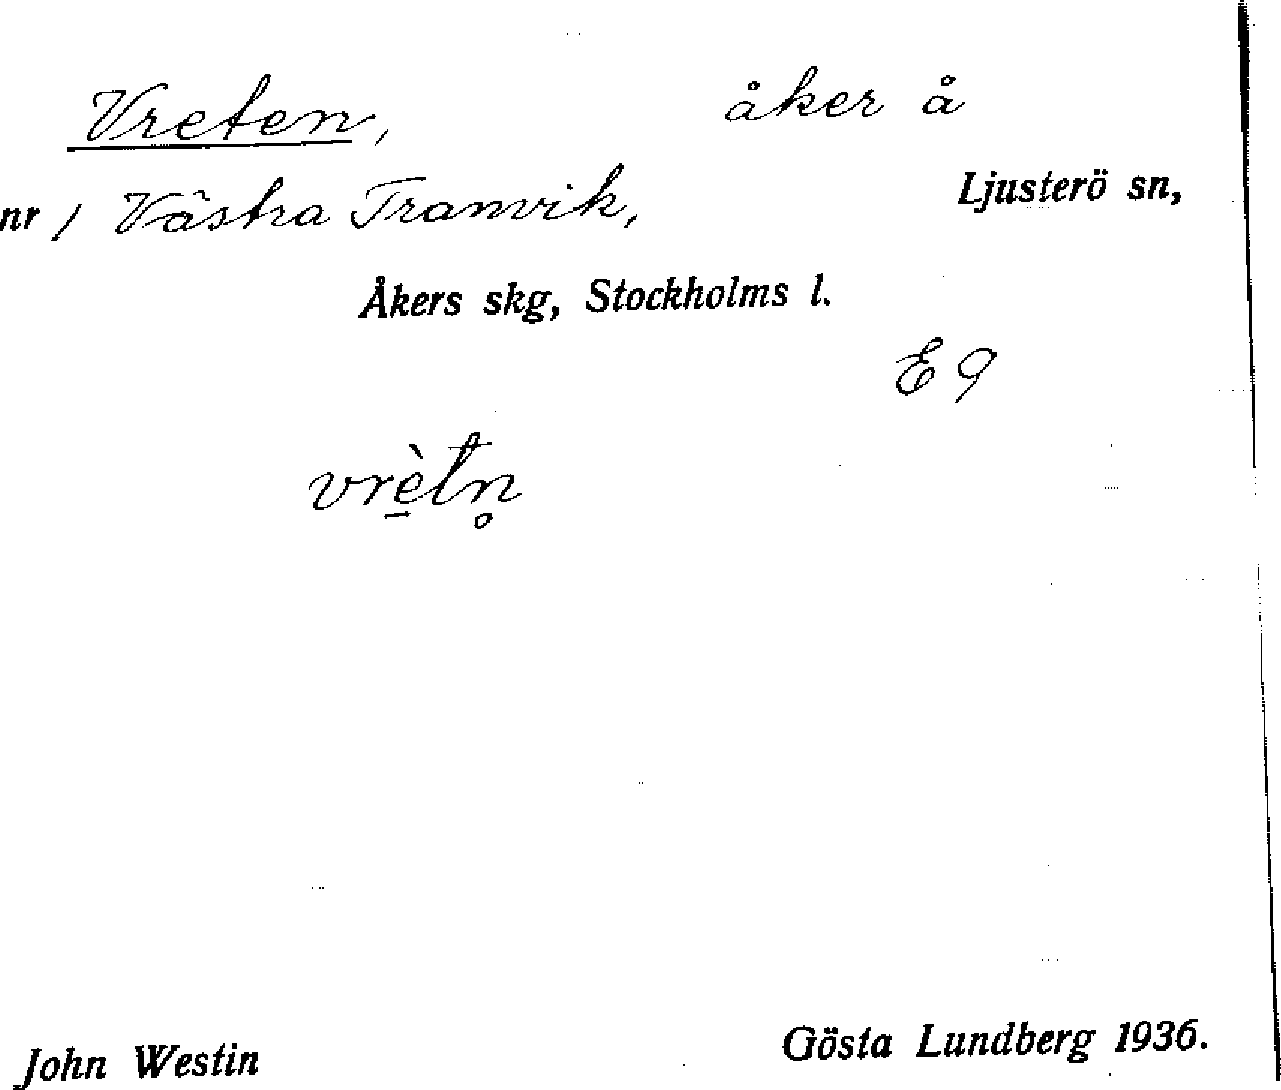 Vreten, åker å
nr 1 Västra Tranvik, Ljusterö sn,
Åkers skg, Stockholms l.
E 9
vrè̱tn̥
John Westin Gösta Lundberg 1936.